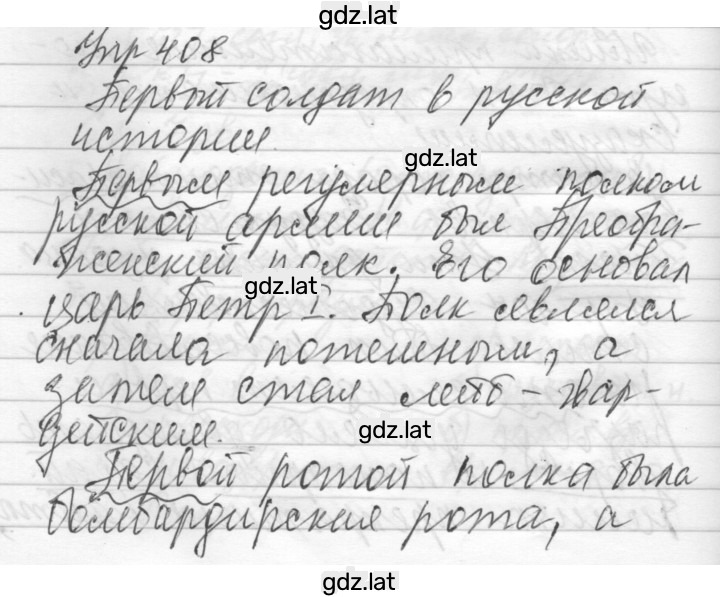 gdz.lat
Упр 408
Первый солдат в русской
истории.
gdz.lat
Первым регулярным полком
русской армии был Преобра-
женский полк. Его основал
gdz.lat
царь Петр I. Полк являлся
сначала потешным, а
затем стал лейб-гвар-
дейским.
gdz.lat
Первой ротой полка была
бомбардирская рота, а
gdz.lat